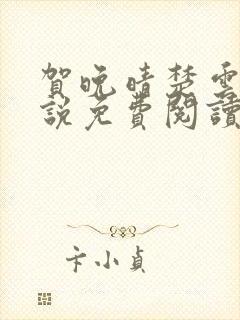 賀晚晴楚雲
說免費閱讀
卡小貞